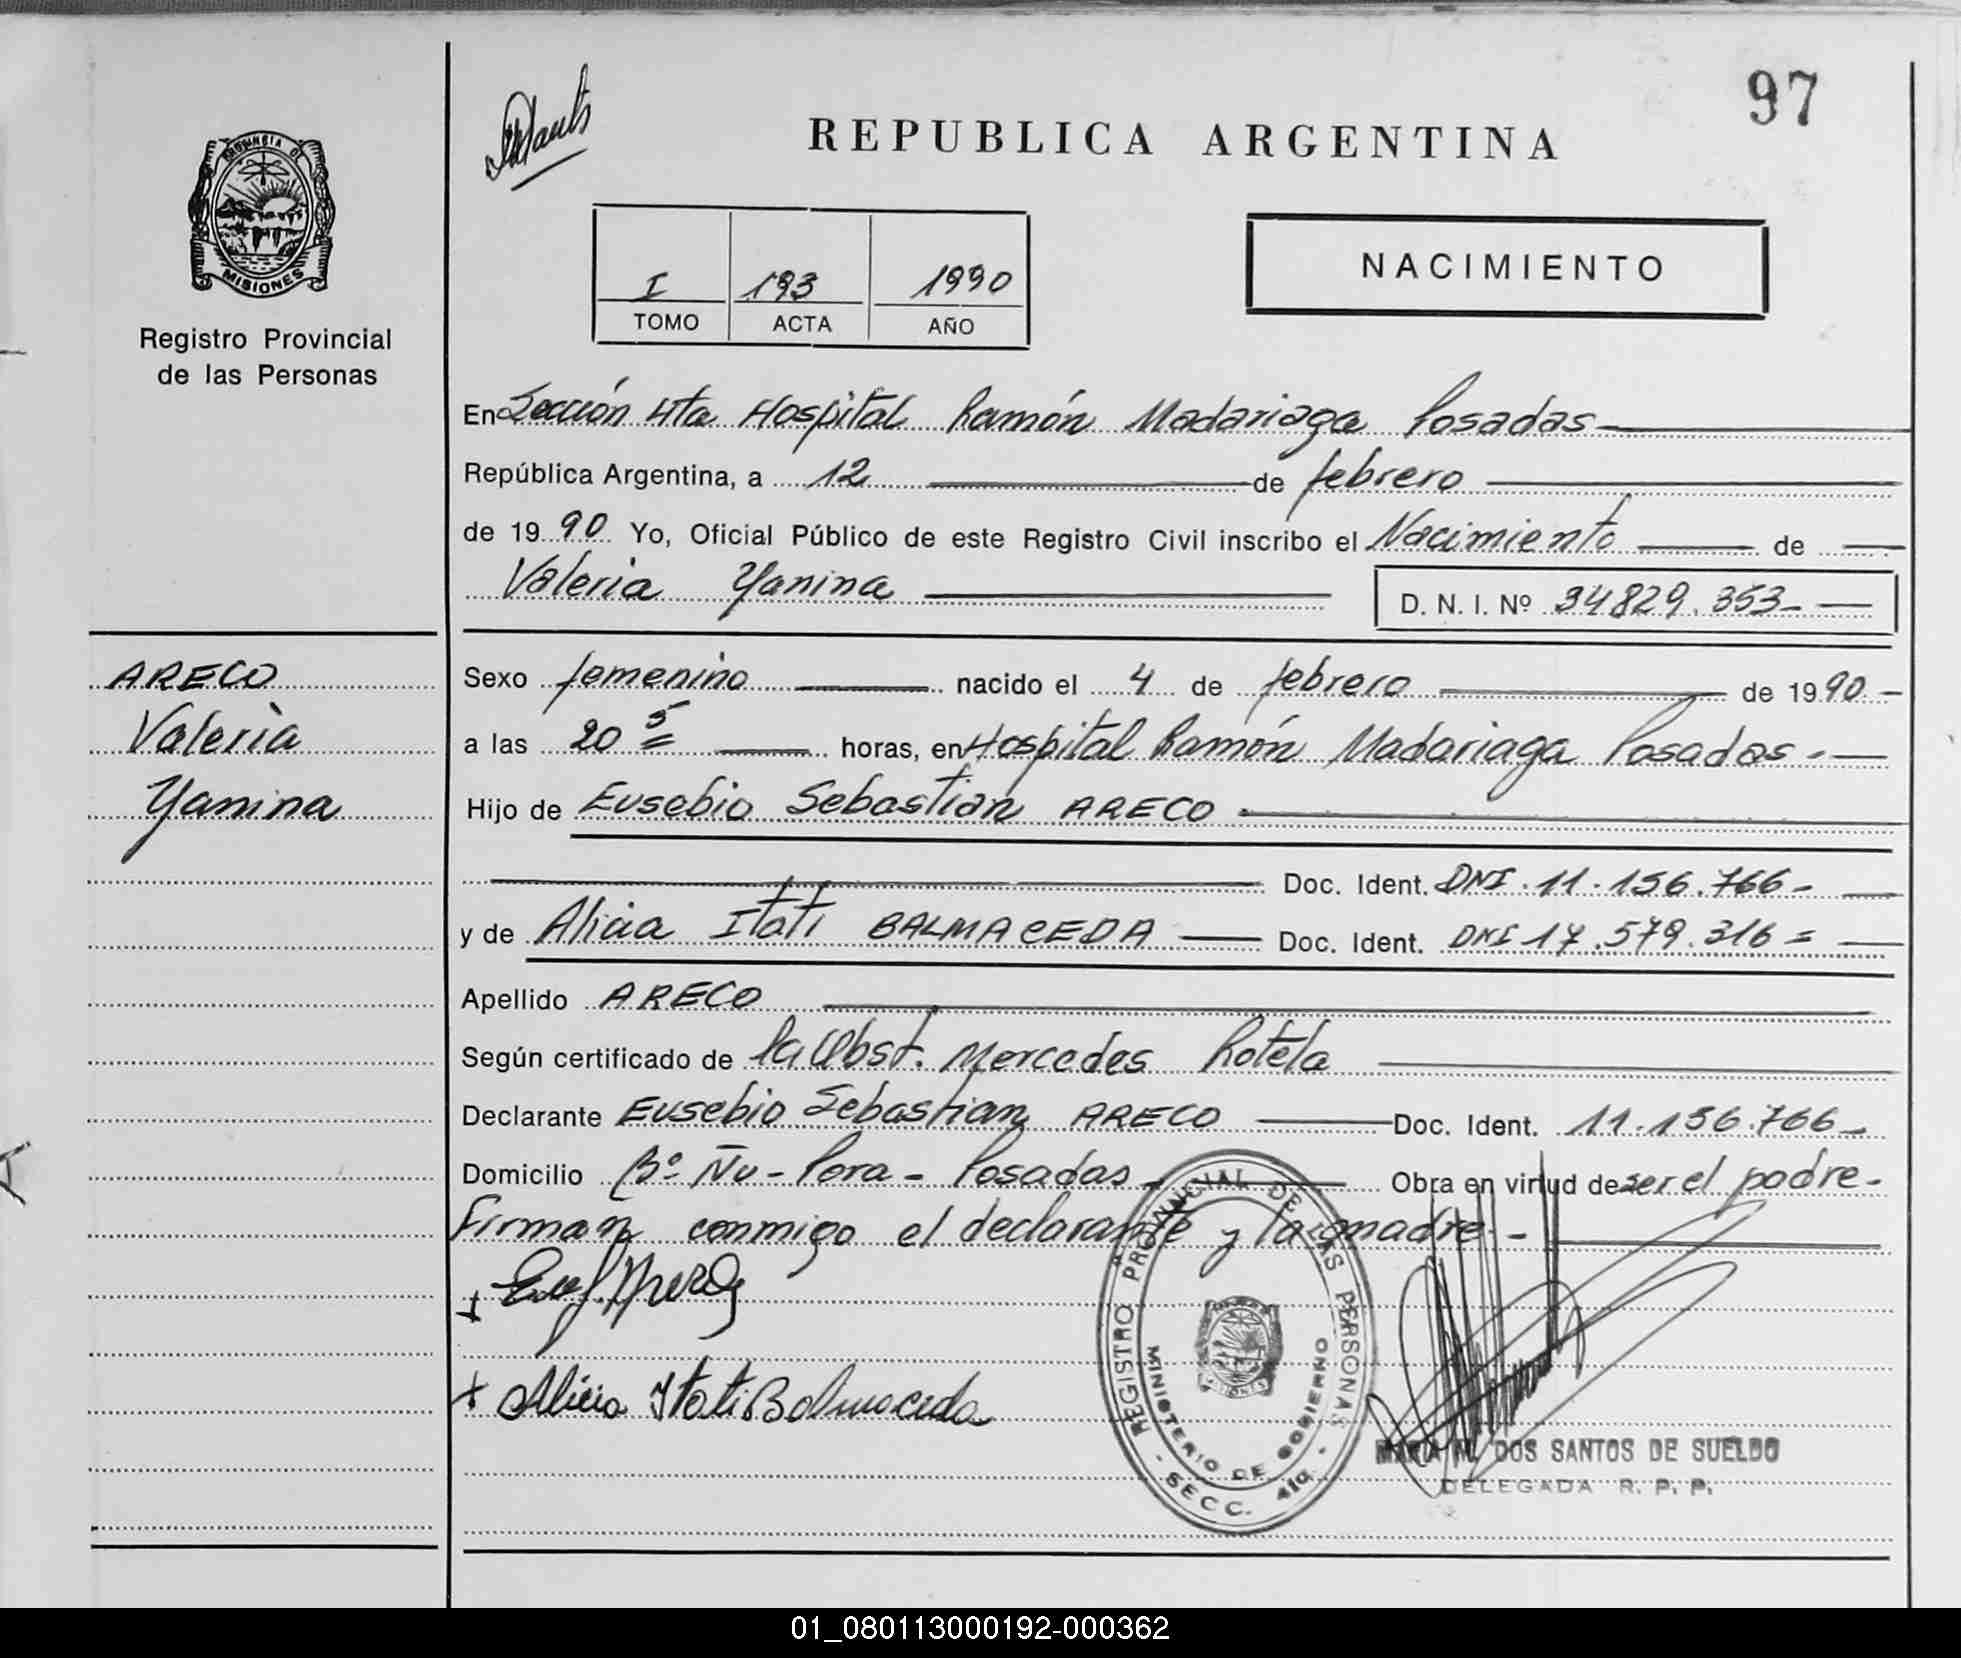 97
REPUBLICA ARGENTINA
PROVINCIA DE
MISIONES
Registro Provincial
de las Personas
I 193 1990
TOMO ACTA AÑO
NACIMIENTO
En Sección 4ta Hospital Ramón Madariaga Posadas
República Argentina, a 12 de febrero
de 1990 Yo, Oficial Público de este Registro Civil inscribo el Nacimiento de
Valeria Yanina
D. N. I. Nº 34829.353
ARECO
Valeria
Yanina
Sexo femenino nacido el 4 de febrero de 1990
a las 20 5 horas, en Hospital Ramón Madariaga Posadas
Hijo de Eusebio Sebastian ARECO
Doc. Ident. DNI.11.156.766
y de Alicia Itati BALMACEDA Doc. Ident. DNI 17.579.316
Apellido ARECO
Según certificado de la Obst. Mercedes Rotela
Declarante Eusebio Sebastian ARECO Doc. Ident. 11.156.766
Domicilio Bº Ñu-Pora- Posadas Obra en virtud de ser el padre-
Firman conmigo el declarante y la madre-
Alicia Itati Balmaceda
REGISTRO PROVINCIAL DE LAS PERSONAS
MINISTERIO DE GOBIERNO
- SECC. 4ta -
MARIA M. DOS SANTOS DE SUELDO
DELEGADA R. P. P.
01_080113000192-000362